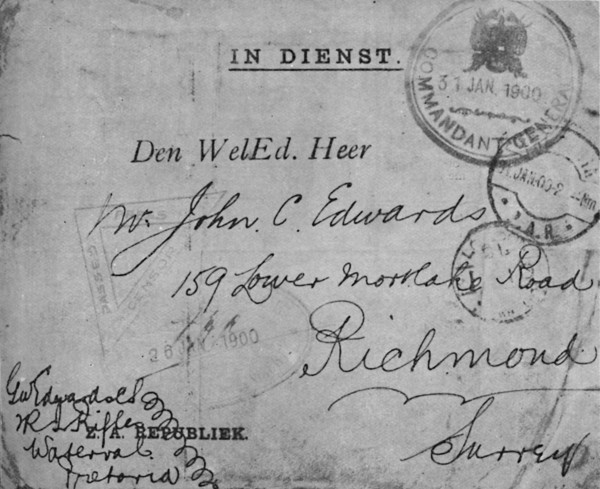 IN DIENST.
COMMANDANT-GENERAAL
31 JAN. 1900
Den WelEd. Heer
Z.A.R.
Mr. John. C. Edwards
159 Lower Mortlake Road
PASSED
CENSOR
26 JAN. 1900
Richmond
Surrey
Z. A. REPUBLIEK.
Waterval
Pretoria